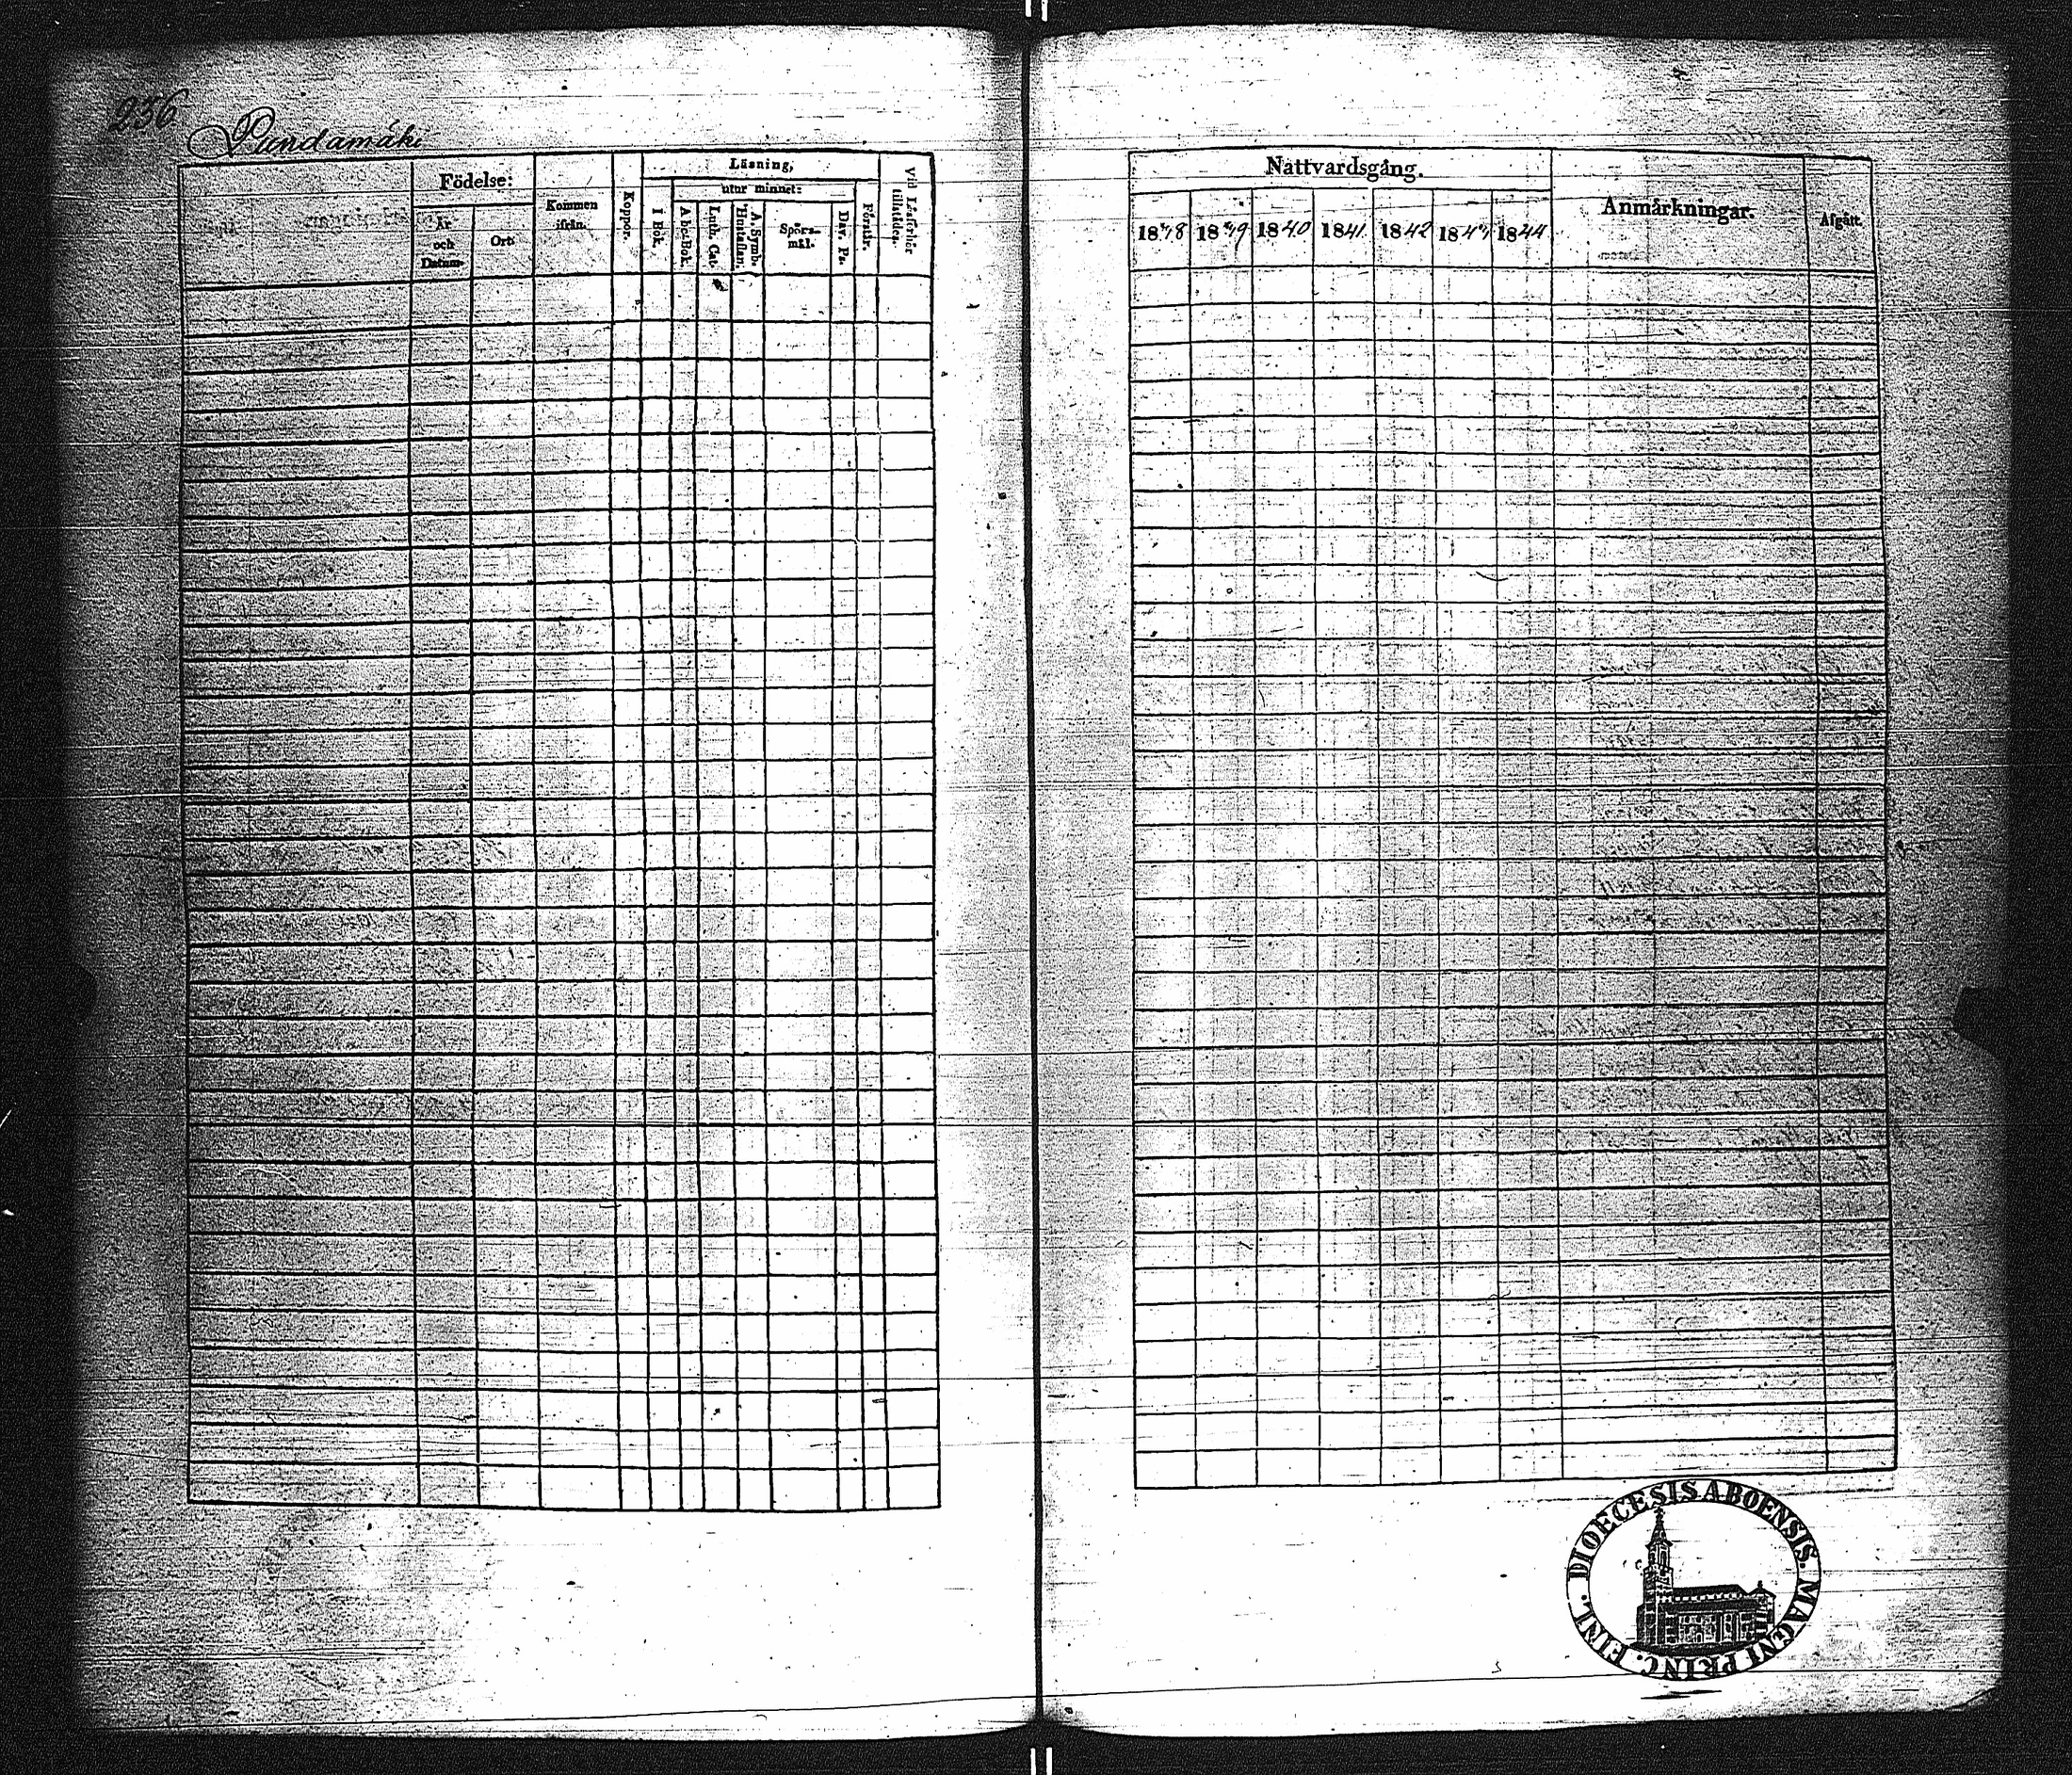 236
Pundamäki
Födelse:
År och Datum.
Ort.
Kommen ifrån.
Koppor.
Läsning,
utur minnet:
I Bok.
Abc-Bok.
Luth. Cat.
A. Symb. Hustaflan.
Spörs-mål.
Dav. Ps.
Förstår.
Vid Läsförhör tillstädes.
Nattvardsgång.
1838 1839 1840 1841 1842 1843 1844
Anmärkningar.
Afgått.
DIOECESIS ABOENSIS. MAGNI PRINC. FINL.